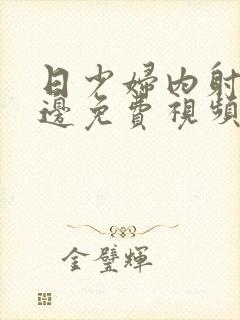 日少婦內射
邊免費視頻
金璧輝